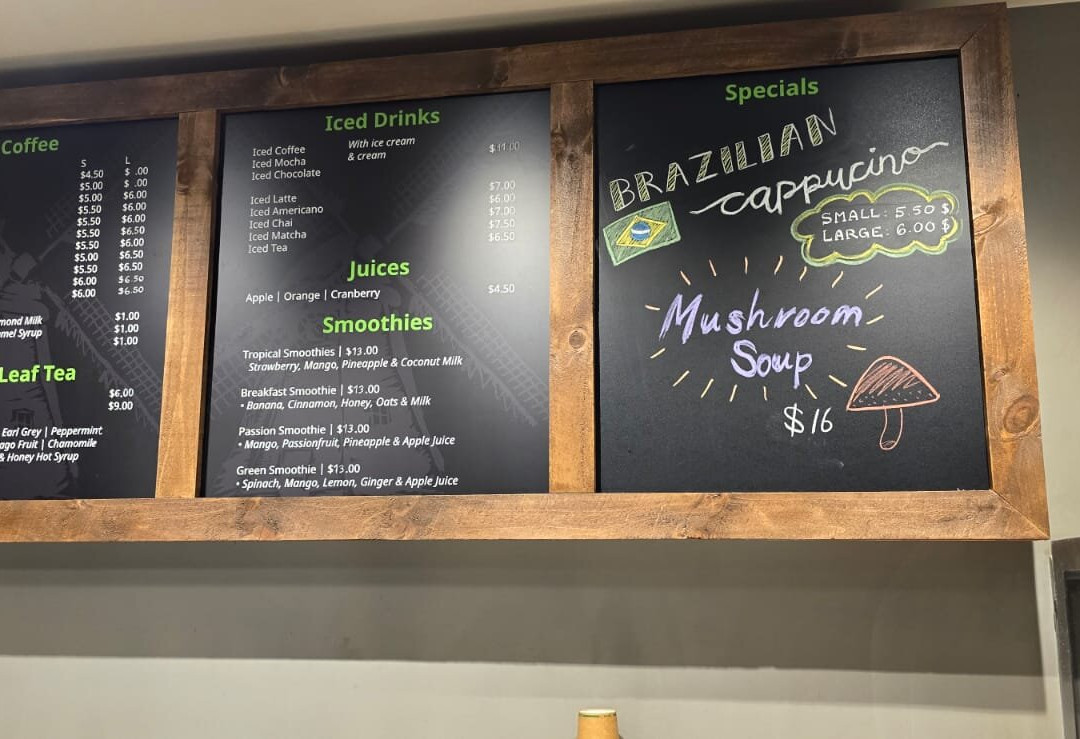 Coffee
S L
$4.50 $ .00
$5.00 $ .00
$5.00 $6.00
$5.50 $6.00
$5.50 $6.00
$5.50 $6.50
$5.50 $6.00
$5.00 $6.50
$5.50 $6.50
$6.00 $6.50
$6.00 $6.50
mond Milk $1.00
mel Syrup $1.00
$1.00
Leaf Tea
$6.00
$9.00
Earl Grey | Peppermint
ago Fruit | Chamomile
& Honey Hot Syrup
Iced Drinks
Iced Coffee With ice cream $11.00
Iced Mocha & cream
Iced Chocolate
Iced Latte $7.00
Iced Americano $6.00
Iced Chai $7.00
Iced Matcha $7.50
Iced Tea $6.50
Juices
Apple | Orange | Cranberry $4.50
Smoothies
Tropical Smoothies | $13.00
Strawberry, Mango, Pineapple & Coconut Milk
Breakfast Smoothie | $13.00
• Banana, Cinnamon, Honey, Oats & Milk
Passion Smoothie | $13.00
• Mango, Passionfruit, Pineapple & Apple Juice
Green Smoothie | $13.00
• Spinach, Mango, Lemon, Ginger & Apple Juice
Specials
BRAZILIAN
cappucino
SMALL: 5.50 $
LARGE: 6.00 $
Mushroom
Soup
$16